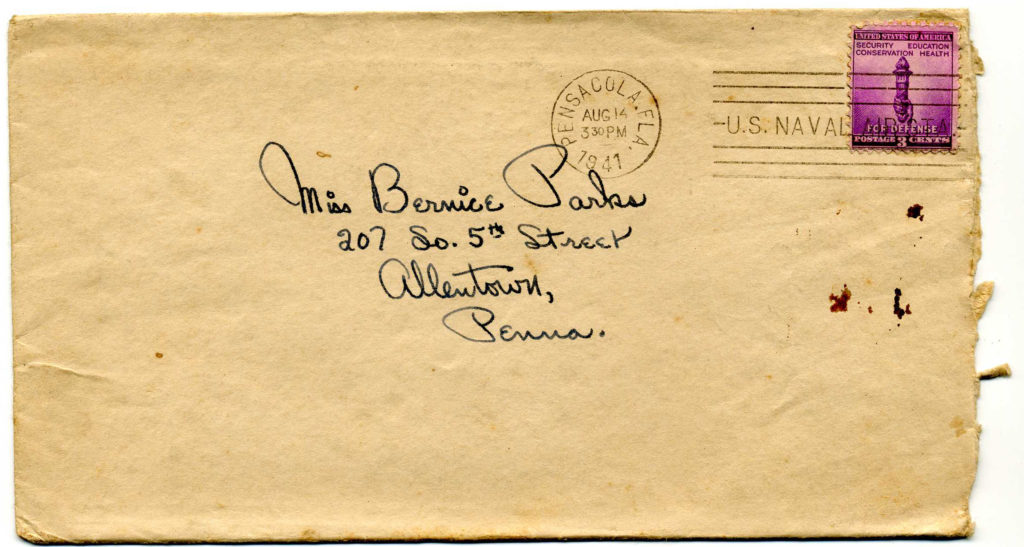 UNITED STATES OF AMERICA
SECURITY EDUCATION
CONSERVATION HEALTH
FOR DEFENSE
POSTAGE 3 CENTS
PENSACOLA, FLA.
AUG 14
3 30 PM
1941
U.S. NAVAL AIR STA
Miss Bernice Parks
207 So. 5th Street
Allentown,
Penna.